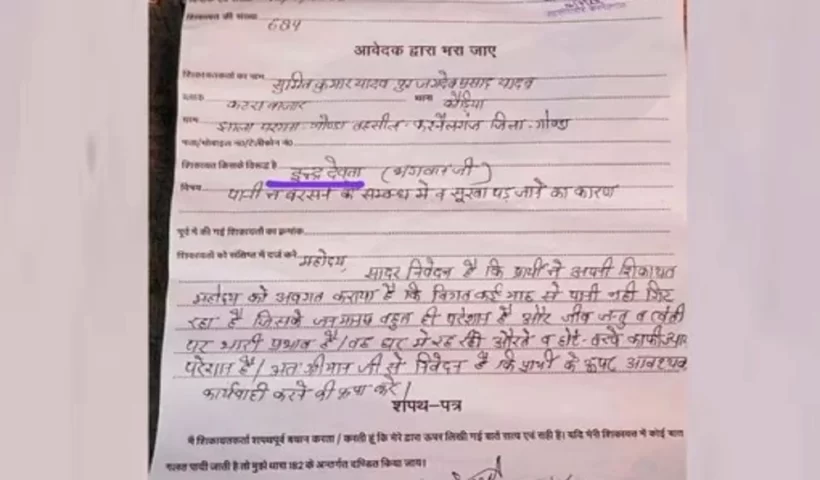 शिकायत की संख्या 684
आवेदक द्वारा भरा जाए
शिकायतकर्ता का नाम सुमित कुमार यादव पुत्र जगदेव प्रसाद यादव
ब्लाक कटरा बाजार थाना कौड़िया
ग्राम झाला परगना गोण्डा तहसील- करनैलगंज जिला-गोण्डा
पता/मोबाइल न0/टेलीफोन न0
शिकायत किसके विरूद्ध है इन्द्र देवता (भगवान जी)
विषय पानी न बरसने के सम्बन्ध में व सूखा पड़ जाने का कारण
पूर्व में की गई शिकायतों का क्रमांक
शिकायतों को संक्षिप्त में दर्ज करें महोदय,
सादर निवेदन है कि प्रार्थी ने अपनी शिकायत
महोदय को अवगत कराया है कि विगत कई माह से पानी नही गिर
रहा है जिसके जनमानस बहुत ही परेशान है और जीव जन्तु व खेती
पर भारी प्रभाव है/ वह घर में रह रही औरते व छोटे-बच्चे काफी
परेशान है/ अतः श्रीमान जी से निवेदन है कि प्रार्थी के ऊपर आवश्यक
कार्यवाही करने की कृपा करें/
शपथ-पत्र
मै शिकायतकर्ता शपथपूर्व बयान करता / करती हूं कि मेरे द्वारा ऊपर लिखी गई बाते सत्य एवं सही है। यदि मेरी शिकायत में कोई बात
गलत पायी जाती है तो मुझे धारा 182 के अन्तर्गत दण्डित किया जाय।